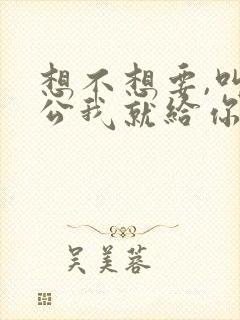 想不想要,叫
公我就給你
吴美蓉